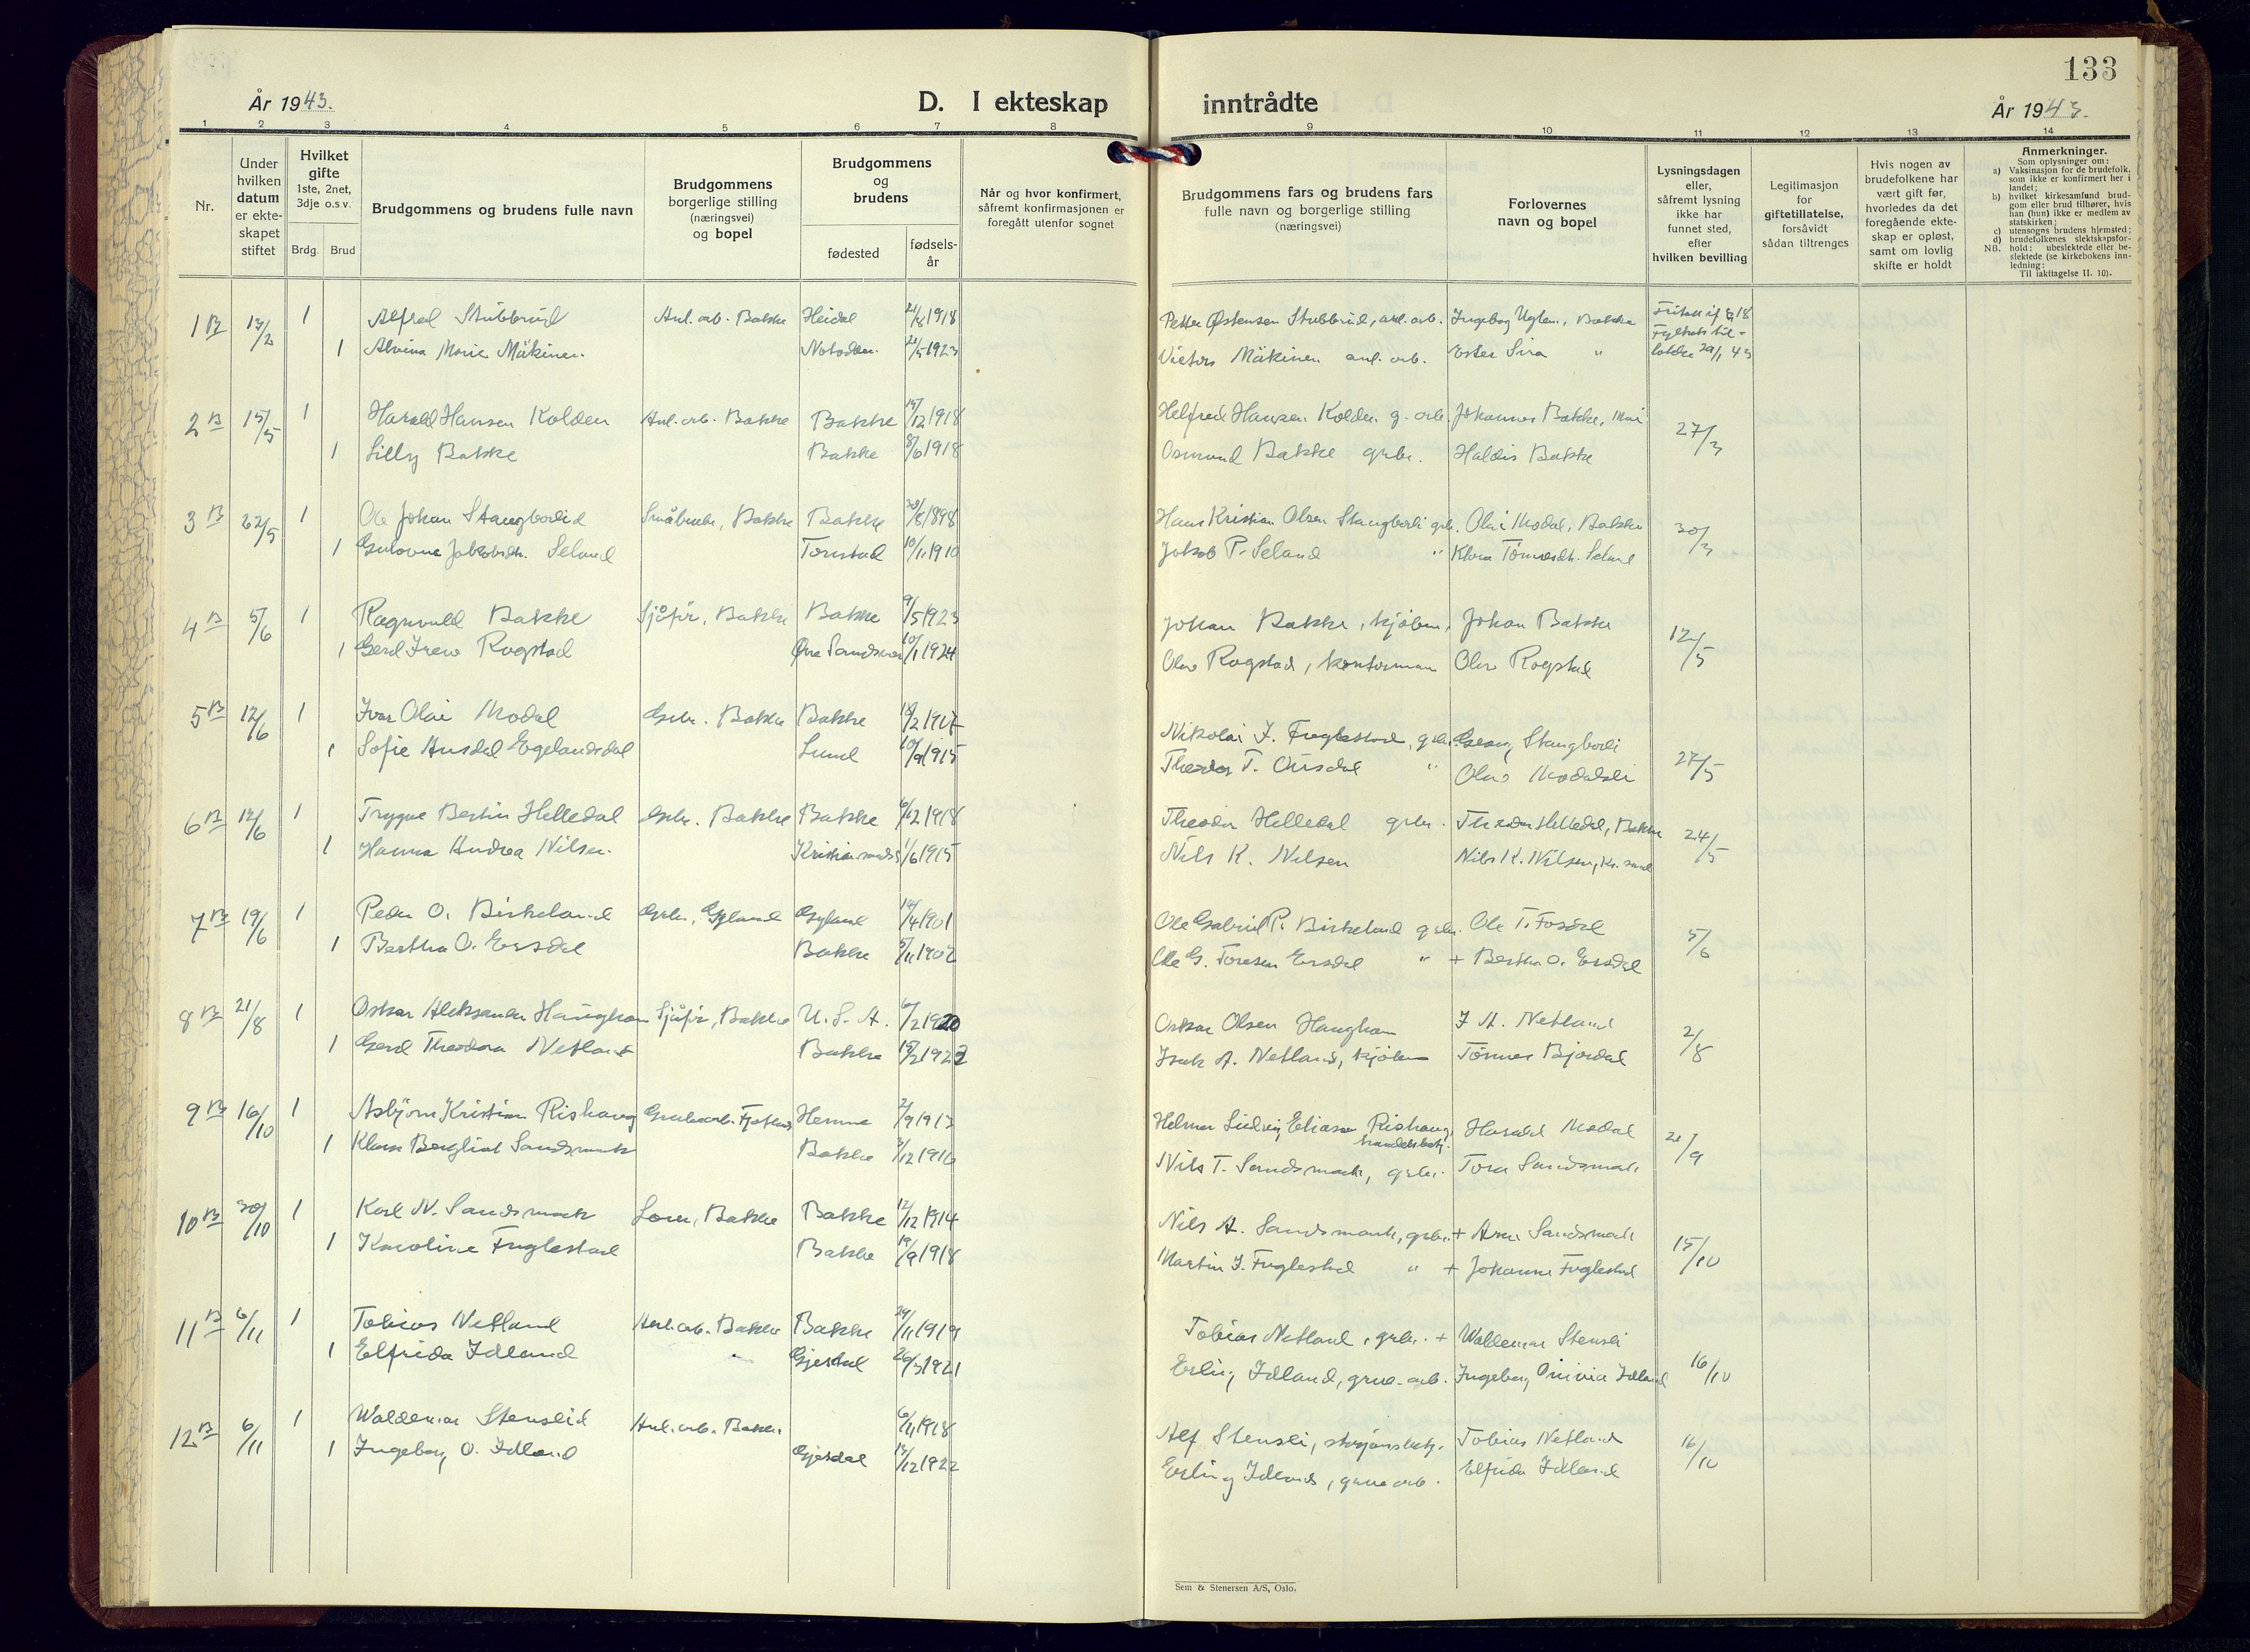 133
År 1943.
D. I ekteskap inntrådte
År 1943.
1 2 3 4 5 6 7 8 9 10 11 12 13 14
Nr.
Under hvilken datum er ekte-skapet stiftet
Hvilket gifte 1ste, 2net, 3dje o.s.v.
Brdg. Brud
Brudgommens og brudens fulle navn
Brudgommens borgerlige stilling (næringsvei) og bopel
Brudgommens og brudens
fødested
fødsels-år
Når og hvor konfirmert, såfremt konfirmasjonen er foregått utenfor sognet
Brudgommens fars og brudens fars fulle navn og borgerlige stilling (næringsvei)
Forlovernes navn og bopel
Lysningsdagen eller, såfremt lysning ikke har funnet sted, efter hvilken bevilling
Legitimasjon for giftetillatelse, forsåvidt sådan tiltrenges
Hvis nogen av brudefolkene har vært gift før, hvorledes da det foregående ekte-skap er opløst, samt om lovlig skifte er holdt
Anmerkninger.
Som oplysninger om:
a) Vaksinasjon for de brudefolk, som ikke er konfirmert her i landet;
b) hvilket kirkesamfund brud-gom eller brud tilhører, hvis han (hun) ikke er medlem av statskirken;
c) utensogns brudens hjemsted;
d) brudefolkenes slektskapsfor-hold: ubeslektede eller be-slektede (se kirkebokens inn-ledning:
NB.
Til iakttagelse II. 10).
1 B 13/2 1 Alfred Stubbrud Anl. arb. Bakke Heidal 1918 Petter Østensen Stubbrud, anl. arb. Ingeborg Uglem, Bakke
1 Alvina Marie Mäkinen Notodden. 21/5 1923 Victor Mäkinen anl. arb. Ester Sira " 29/1 43
2 B 15/5 1 Harald Hansen Kolden Anl. arb. Bakke Bakke 1918 Helfred Hansen Kolden g. arb. Johannes Bakke, 27/3
1 Lilly Bakke Bakke 8/6 1918 Osmund Bakke grbr. Haldis Bakke
3 B 22/5 1 Ole Johan Stangborlid Småbruker, Bakke Bakke 30/8 1898 Hans Kristian Olsen Stangborli grbr. Olai Modal, Bakke 30/3
1 Gulovna Jakobsdtr. Seland Tonstad 10/11 1910 Jakob P. Seland " Klara Tómasdtr. Seland
4 B 5/6 1 Ragnvald Bakke Sjåfør, Bakke Bakke 9/5 1923 Johan Bakke, kjøbm. Johan Bakke 12/5
1 Gerd Irene Rogstad Øvre Sandsvær 10/1 1924 Olav Rogstad, kontormann Olav Rogstad
5 B 12/6 1 Ivar Olai Modal Grbr. Bakke Bakke 18/2 1917 Nikolai J. Fuglestad, grbr. Georg Stangborli 27/5
1 Sofie Ausdal Egelandsdal Lund 10/9 1915 Theodor T. Ousdal " Olav Modalsli
6 B 12/6 1 Trygve Bertin Helledal Grbr. Bakke Bakke 6/12 1918 Theodor Helledal grbr. Theodor Helledal, Bakke 24/5
1 Hanna Andrea Nilsen. Kristiansand S 1/6 1915 Nils K. Nilsen Nils K. Nilsen, Kr. sand
7 B 19/6 1 Peder O. Birkeland Grbr., Gyland Gyland 14/4 1901 Ole Gabriel P. Birkeland grbr. Ole T. Fosdal 5/6
1 Bertha O. Ersdal Bakke 5/11 1902 Ole G. Toresen Ersdal " + Bertha O. Ersdal
8 B 21/8 1 Oskar Aleksander Haugham Sjåfør, Bakke U.S.A. 6/2 1920 Oskar Olsen Haugham J A. Netland 2/8
1 Gerd Theodora Netland Bakke 15/2 1922 Isak A. Netland, kjøbm Tönnes Bjordal
9 B 16/10 1 Asbjørn Kristian Rishaug Grubearb. Hemne 2/9 1913 Helmer Ludvig Eliasen Rishaug, handelsbetj. Harald Modal 21/9
1 Klara Bergliot Sandsmark Bakke 3/12 1916 Nils T. Sandsmark, grbr. Tora Sandsmark
10 B 30/10 1 Karl N. Sandsmark Bakke Bakke 12/12 1914 Nils A. Sandsmark, grbr. + Arne Sandsmark 15/10
1 Karoline Fuglestad Bakke 19/9 1918 Martin J. Fuglestad " + Johanne Fuglestad
11 B 6/11 1 Tobias Netland Anl. arb. Bakke Bakke 29/11 1919 Tobias Netland, grbr. + Waldemar Stensli 16/10
1 Elfrida Idland Gjesdal 26/3 1921 Erling Idland, gruvearb. Ingeborg Idland
12 B 6/11 1 Waldemar Stenslid Anl. arb. Bakke. 6/11 1918 Alf Stensli, Tobias Netland 16/10
1 Ingeborg O. Idland Gjesdal 13/12 1922 Erling Idland, gruvearb. Elfrida Idland
Sem & Stenersen A/S, Oslo.